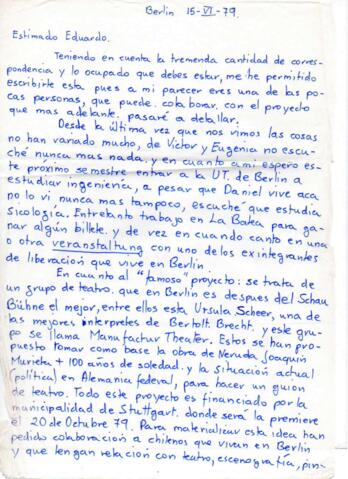 Berlin 15-VI-79.
Estimado Eduardo.
Teniendo en cuenta la tremenda cantidad de corres-
pondencia y lo ocupado que debes estar, me he permitido
escribirte esta pues a mi parecer eres una de las po-
cas personas, que puede colaborar con el proyecto
que mas adelante pasaré a detallar.
Desde la última vez que nos vimos las cosas
no han variado mucho, de Víctor y Eugenia no escu-
ché nunca mas nada. y en cuanto a mi espero es-
te próximo semestre entrar a la UT. de Berlin a
estudiar ingeniería, a pesar que Daniel vive aca
no lo vi nunca mas tampoco, escuché que estudia
Sicologica. Entretanto trabajo en La Batea para ga-
nar algún billete. y de vez en cuando canto en una
o otra veranstaltung con uno de los exintegrantes
de liberación que vive en Berlin.
En cuanto al "famoso" proyecto: se trata de
un grupo de teatro. que en Berlin es despues del Schau
Bühne el mejor, entre ellos esta Ursula Scheer, una de
las mejores interpretes de Bertolt. Brecht. y este gru-
po se llama Manufactur Theater. Estos se han pro-
puesto tomar como base la obra de Neruda Joaquin
Murieta + 100 años de soledad. y la situación actual
(política) en Alemania federal, para hacer un guion
de teatro. Todo este proyecto es financiado por la
municipalidad de Stuttgart. donde será la premiere
el 20 de Octubre 79. Para materializar esta idea han
pedido colaboración a chilenos que vivan en Berlin
y que tengan relación con teatro, escenografía, pin-